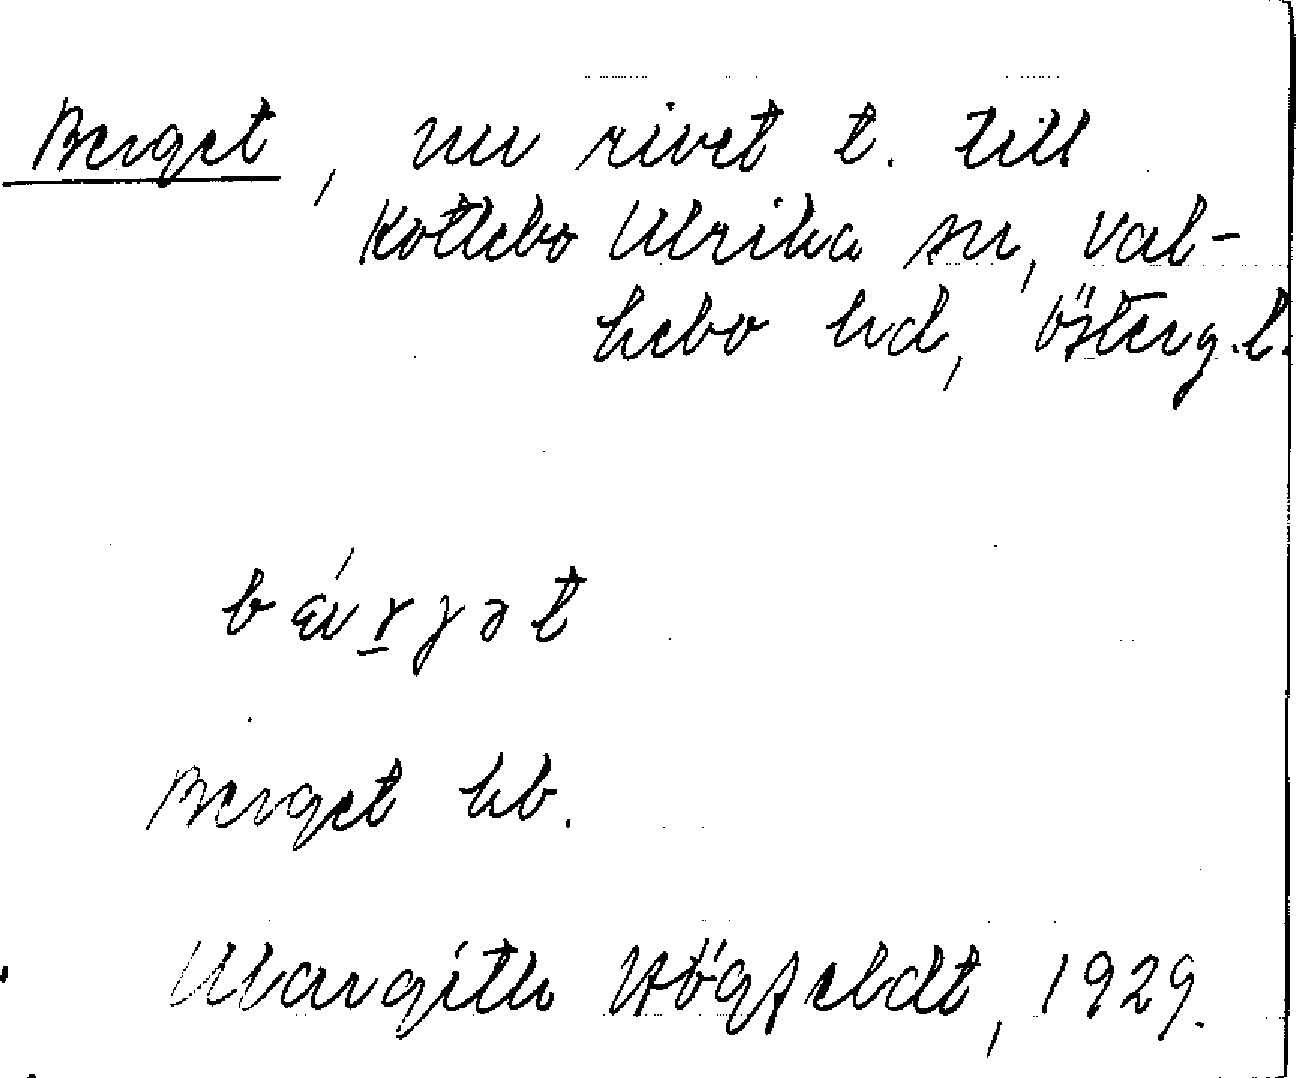 Berget, nu rivet t. till
Kottebo Ulrika sn, Val-
kebo hd, Österg.l.
Berget kb.
Margith Högfeldt, 1929.